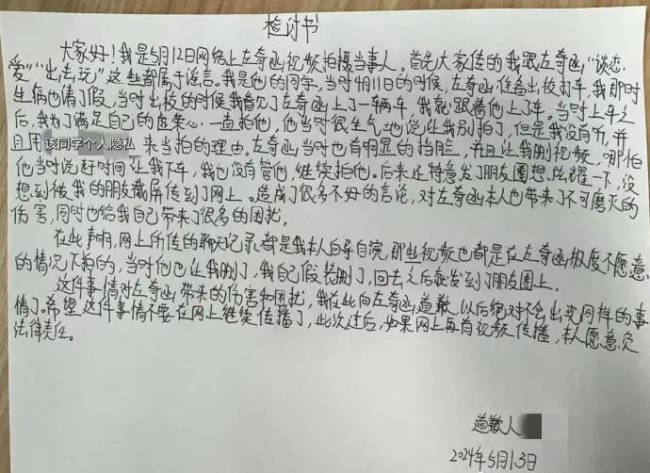 检讨书
大家好！我是5月12日网络上左奇函视频拍摄当事人。首先大家传的我跟左奇函“谈恋
爱”“出去玩”这些都属于谣言。我是他的同学，当时4月11日的时候，左奇函准备出校打车，我那时
生病也请了假，当时出校的时候我看见了左奇函上了一辆车，我就跟着他上了车。当时上车之
后，我为了满足自己的虚荣心一直拍他，他当时很生气地说让我别拍了，但是我没有听，并
且用该同学个人隐私来当拍的理由。左奇函当时也有明显的挡脸，并且让我删视频，哪怕
他当时说赶时间让我下车，我也没有管他，继续拍他。后来还特意发了朋友圈想炫耀一下，没
想到被我的朋友截屏传到了网上。造成了很多不好的言论，对左奇函本人也带来了不可磨灭的
伤害，同时也给我自己带来了很多的困扰。
在此声明，网上所传的聊天记录都是我本人自导自演，那些视频也都是在左奇函极度不愿意
的情况下拍的，当时他也让我删了，我自己假装删了，回去之后就发到了朋友圈上。
这件事情对左奇函带来的伤害和困扰，我在此向左奇函道歉，以后绝对不会出现同样的事
情了。希望这件事情不要在网上继续传播了，此次过后，如果网上再有视频传播，本人愿意负
法律责任。
道歉人
2024年5月13日